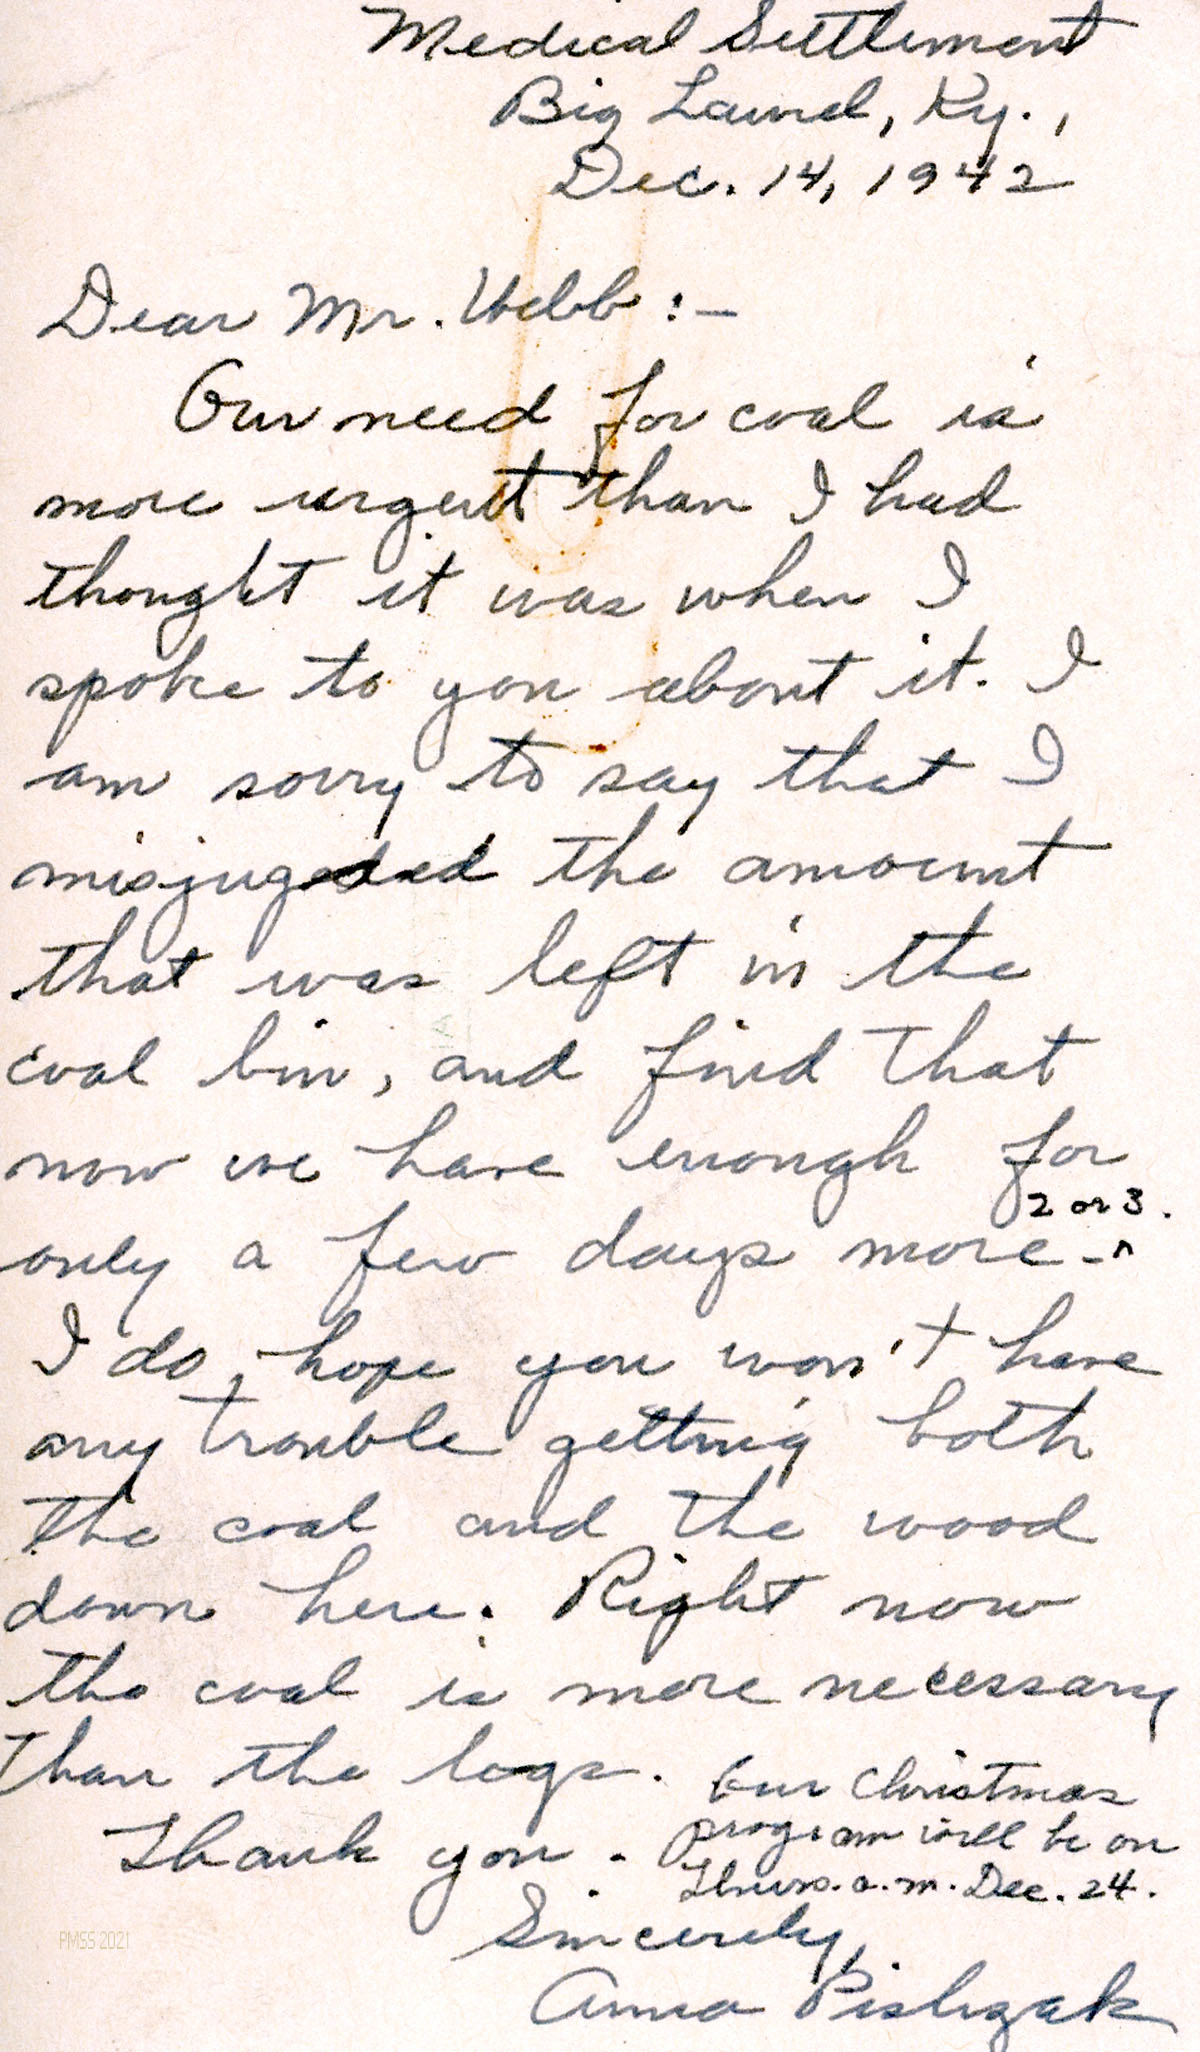 Medical Settlement
Big Laurel, Ky.,
Dec. 14, 1942
Dear Mr. Webb:-
Our need for coal is
more urgent than I had
thought it was when I
spoke to you about it. I
am sorry to say that I
misjugeded the amount
that was left in the
coal bin, and find that
now we have enough for
2 or 3.
only a few days more-^
I do, hope you won't have
any trouble getting both
the coal and the wood
down here. Right now
the coal is more necessary
than the logs.
Thank you.
Our Christmas
program will be on
Thurs. a.m. Dec. 24.
Sincerely,
Anna Pishzak
PMSS 2021